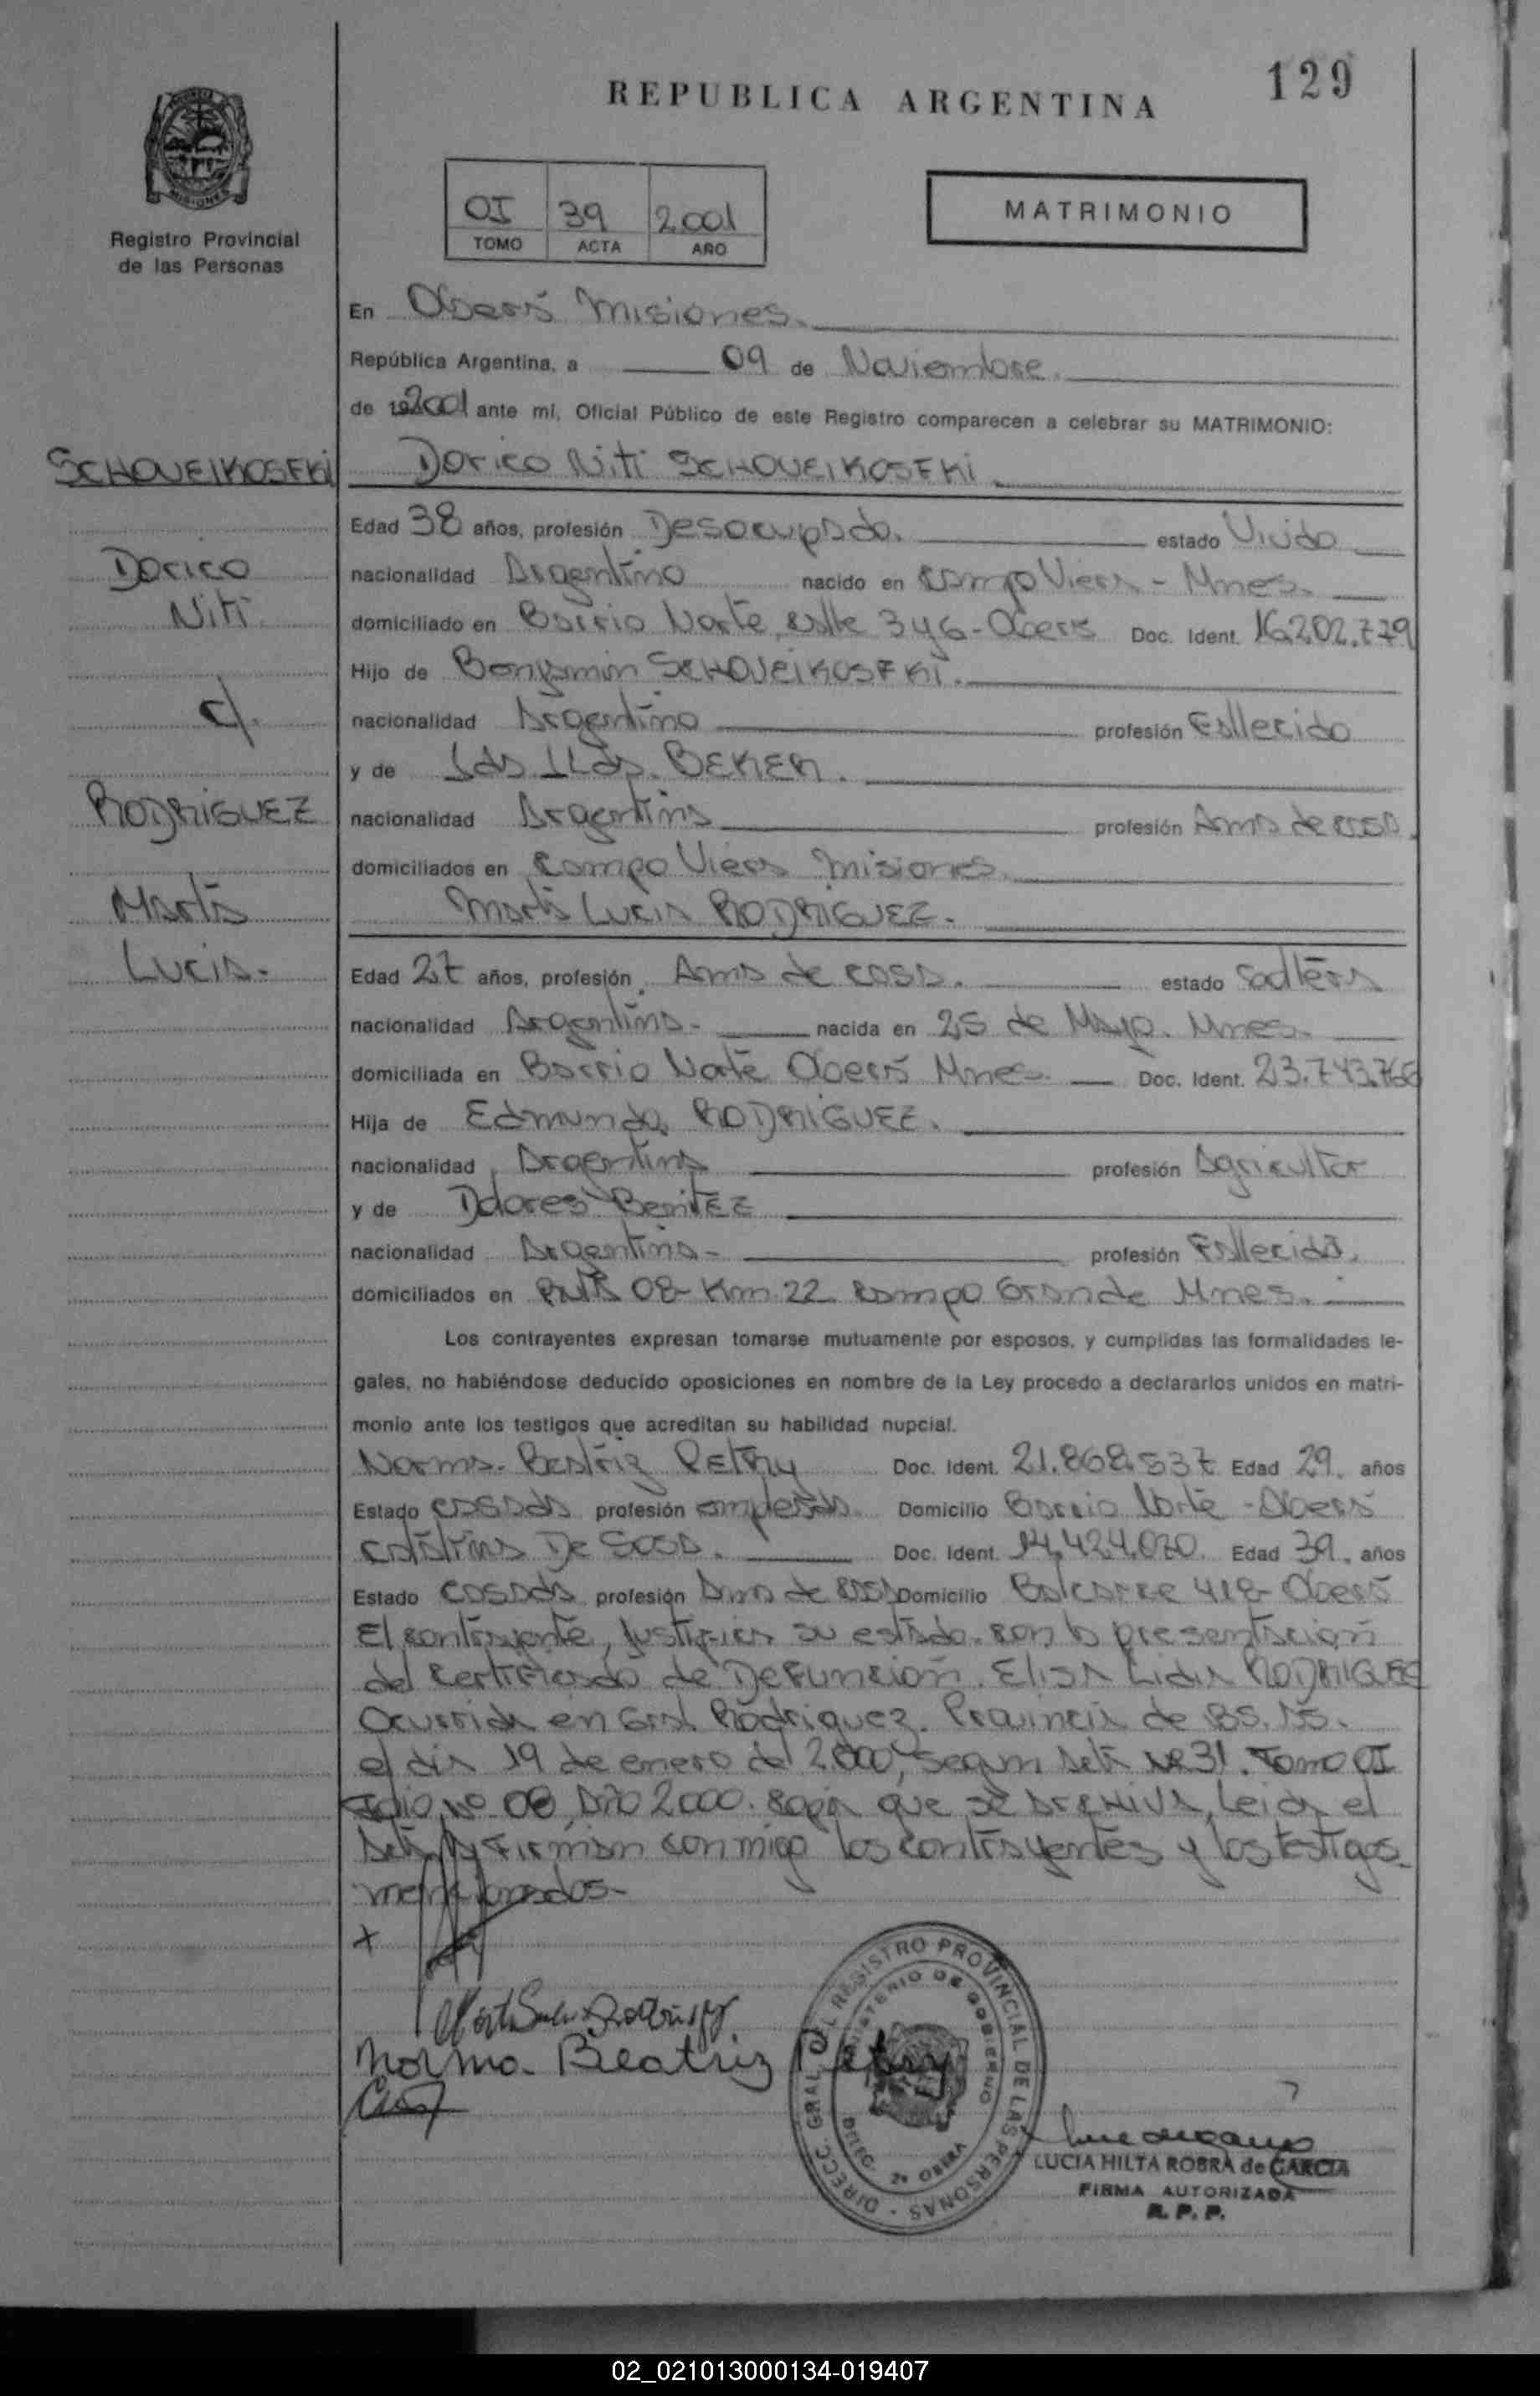 REPUBLICA ARGENTINA
129
Registro Provincial
de las Personas
OI 39 2.001
TOMO ACTA AÑO
MATRIMONIO
En Oberá Misiones.
República Argentina, a 09 de Noviembre.
de 2001 ante mi, Oficial Público de este Registro comparecen a celebrar su MATRIMONIO:
SCHOVEIKOSFKi
Dorico Niti SCHOVEIKOSFKi.
Edad 38 años, profesión Desocupado. estado Viudo
Dorico
nacionalidad Argentino nacido en Campo Viera - Mnes.
Niti
domiciliado en Barrio Norte, calle 346 - Oberá Doc. Ident. 16.202.779
Hijo de Benjamin SCHOVEIKOSFKi.
c/.
nacionalidad Argentino profesión Fallecido
y de BEKER.
RODRIGUEZ
nacionalidad Argentina profesión Ama de casa.
domiciliados en Campo Viera Misiones.
Marta
Marta Lucia RODRIGUEZ.
Lucia.-
Edad 27 años, profesión Ama de casa. estado Soltera
nacionalidad Argentina.- nacida en 25 de Mayo. Mnes.
domiciliada en Barrio Norte Oberá Mnes. Doc. Ident. 23.743.766
Hija de Edmundo RODRIGUEZ.
nacionalidad Argentina profesión Agricultor
y de Dolores BenitEZ
nacionalidad Argentina.- profesión Fallecida.
domiciliados en Ruta 08- Km 22 Campo Grande Mnes.
Los contrayentes expresan tomarse mutuamente por esposos, y cumplidas las formalidades le-
gales, no habiéndose deducido oposiciones en nombre de la Ley procedo a declararlos unidos en matri-
monio ante los testigos que acreditan su habilidad nupcial.
Norma. Beatriz Petry Doc. Ident. 21.868.537 Edad 29. años
Estado casada profesión empleada. Domicilio Barrio Norte - Oberá
Catalina De Sosa. Doc. Ident. 14.424.030. Edad 39. años
Estado casada profesión Ama de casa Domicilio Balcarce 418- Oberá
El contrayente, justifica su estado. con la presentación
del certificado de Defunción. Elisa Lidia RODRIGUEZ
Ocurrida en Gral Rodriguez. Provincia de BS. AS.
el dia 19 de enero del 2.000, segun acta Nº 31. Tomo OI
Folio Nº 08, Año 2000. copia que se archiva, Leida el
acta, la Firman conmigo los contrayentes y los testigos
mencionados-
x
Norma. Beatriz Petry
DIRECC. GRAL. DEL REGISTRO PROVINCIAL DE LAS PERSONAS
MINISTERIO DE GOBIERNO
DELEG. 2ª OBERA
LUCIA HILTA ROBRA de GARCIA
FIRMA AUTORIZADA
R. P. P.
02_021013000134-019407